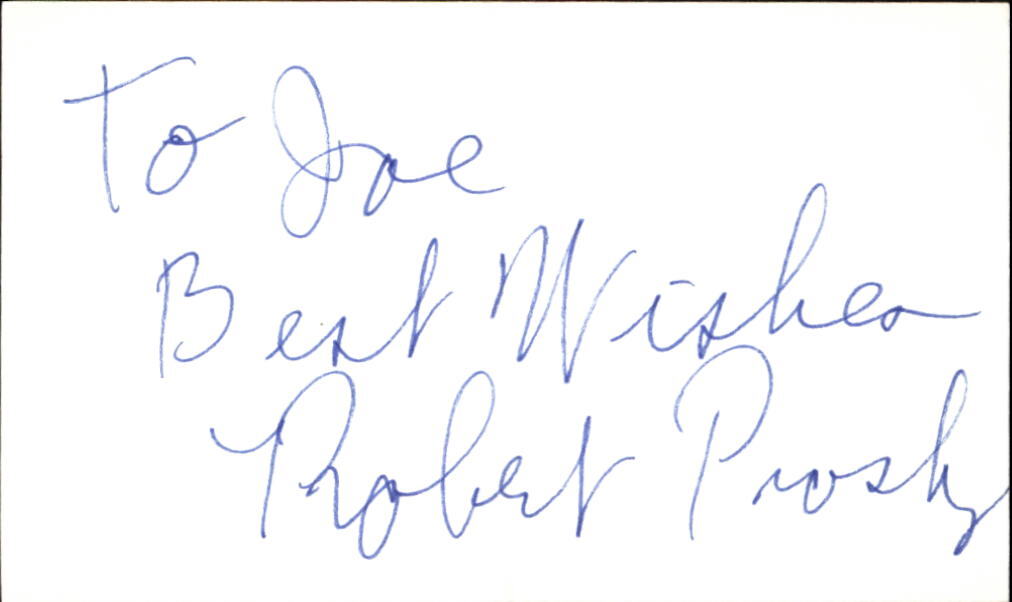 To Joe
Best Wishes
Robert Prosky